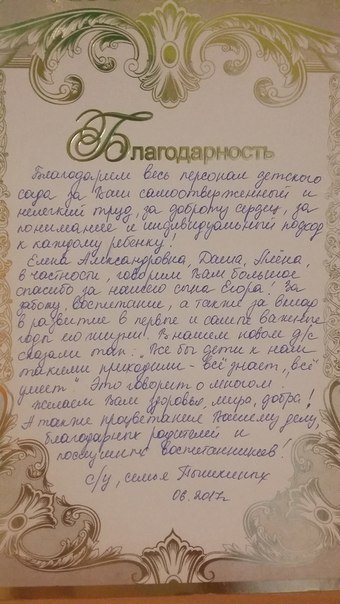 Благодарность
Благодарим весь персонал детского
сада за Ваш самоотверженный и
нелегкий труд, за доброту сердец, за
понимание и индивидуальный подход
к каждому ребенку!
Елена Александровна, Даша, Алёна
в частности, говорим Вам большое
спасибо за нашего сына Егора! За
заботу, воспитание, а также за вклад
в развитие в первые и самые важные
годы его жизни. В нашем новом д/с
сказали так: „Все бы дети к нам
такими приходили - всё знает, всё
умеет." Это говорит о многом!
Желаем Вам здоровья, мира, добра!
А также процветания Вашему делу,
благодарных родителей и
послушных воспитанников!
с/у, семья
06.2017г